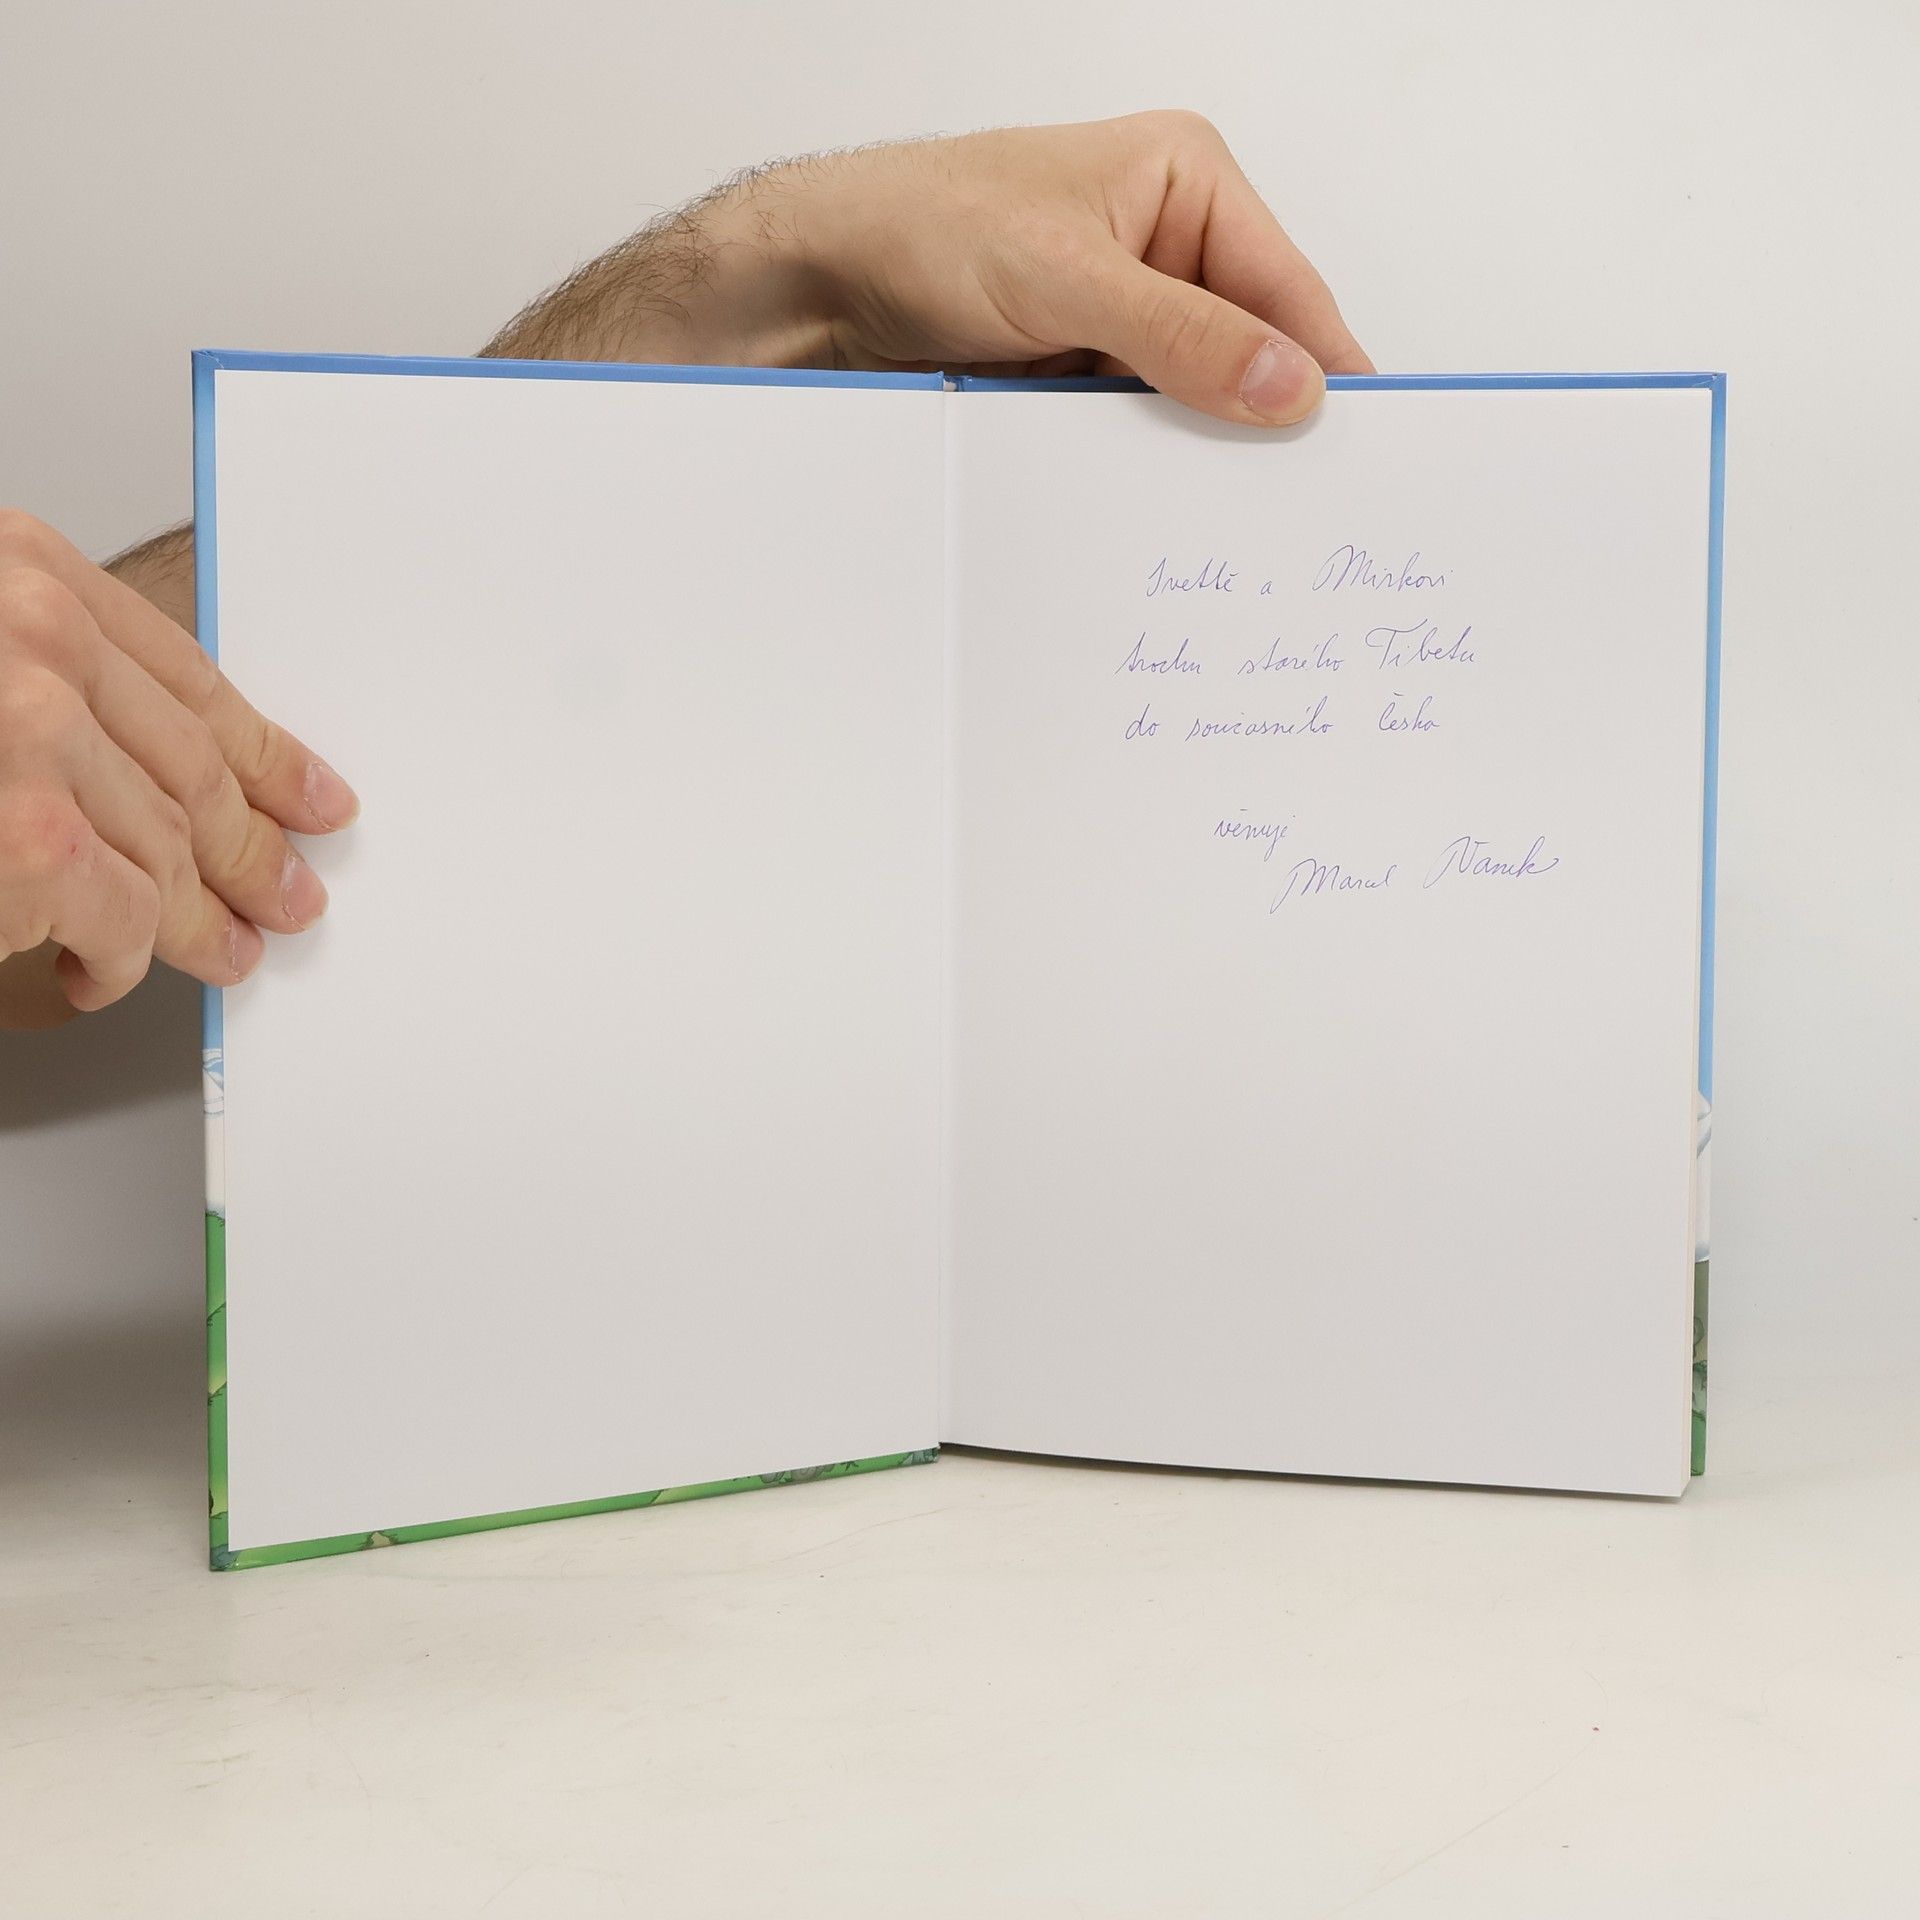 Ivettě a Mirkovi
trochu starého Tibetu
do současného Česka
věnuje
Marcel Vaněk